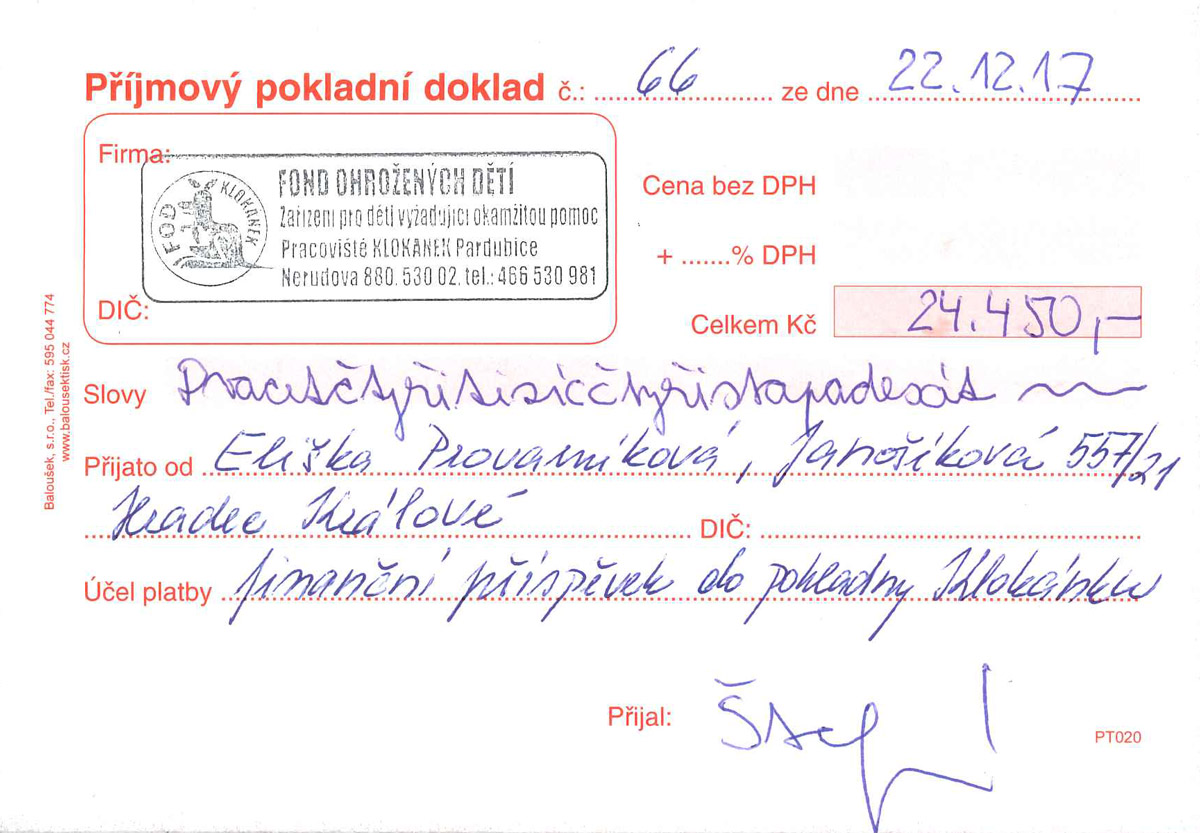 Příjmový pokladní doklad č.: 66 ze dne 22.12.17
Firma:
FOD KLOKÁNEK
FOND OHROŽENÝCH DĚTÍ
Zařízení pro děti vyžadující okamžitou pomoc
Pracoviště KLOKÁNEK Pardubice
Nerudova 880, 530 02, tel.: 466 530 981
DIČ:
Cena bez DPH
+ .......% DPH
Celkem Kč 24.450,-
Slovy Dvacetčtyřitisícčtyřistapadesát
Přijato od Eliška Provazníková, Janošíková 557/21
Hradec Králové DIČ:
Účel platby finanční příspěvek do pokladny Klokánku
Přijal:
PT020
Baloušek, s.r.o., Tel./fax: 595 044 774
www.balousektisk.cz